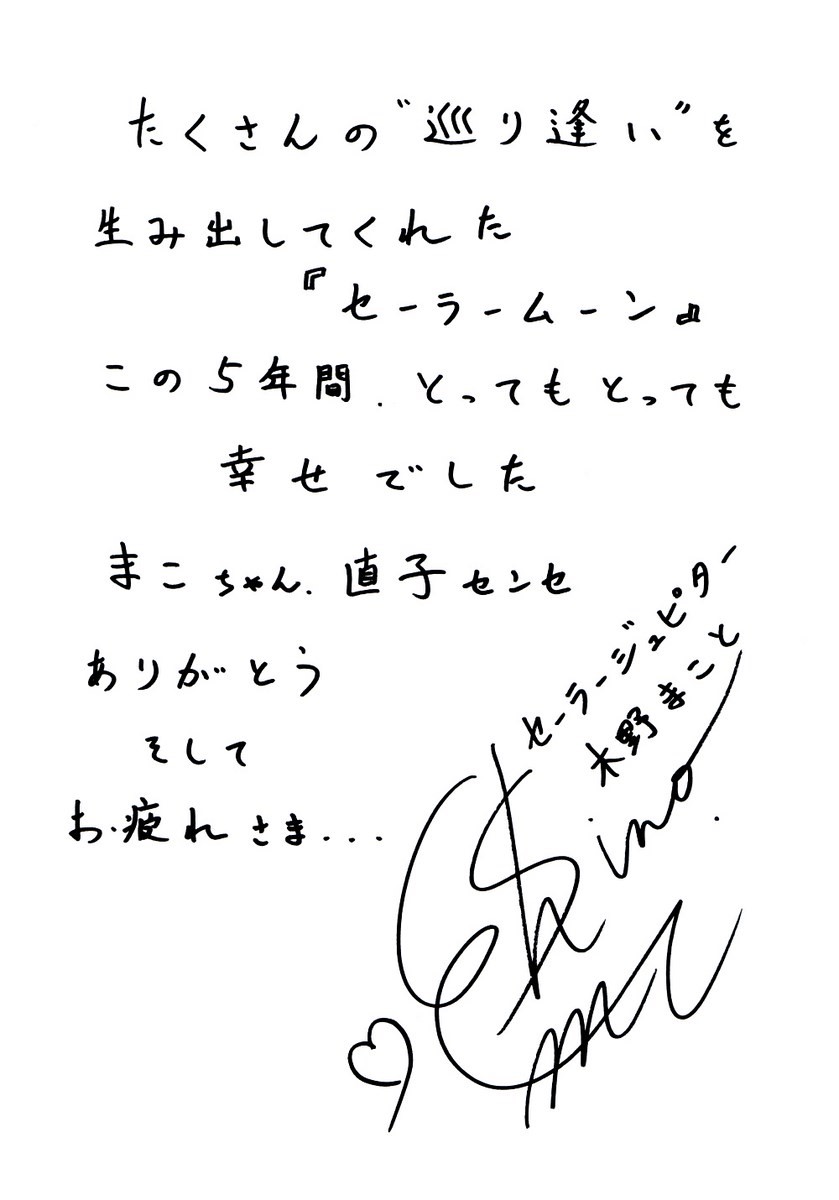 たくさんの“巡り逢い”を
生み出してくれた
『セーラームーン』
この5年間、とってもとっても
幸せでした
まこちゃん、直子センセ
ありがとう
そして
お疲れさま...
セーラージュピター
木野まこと
Emi Shinohara